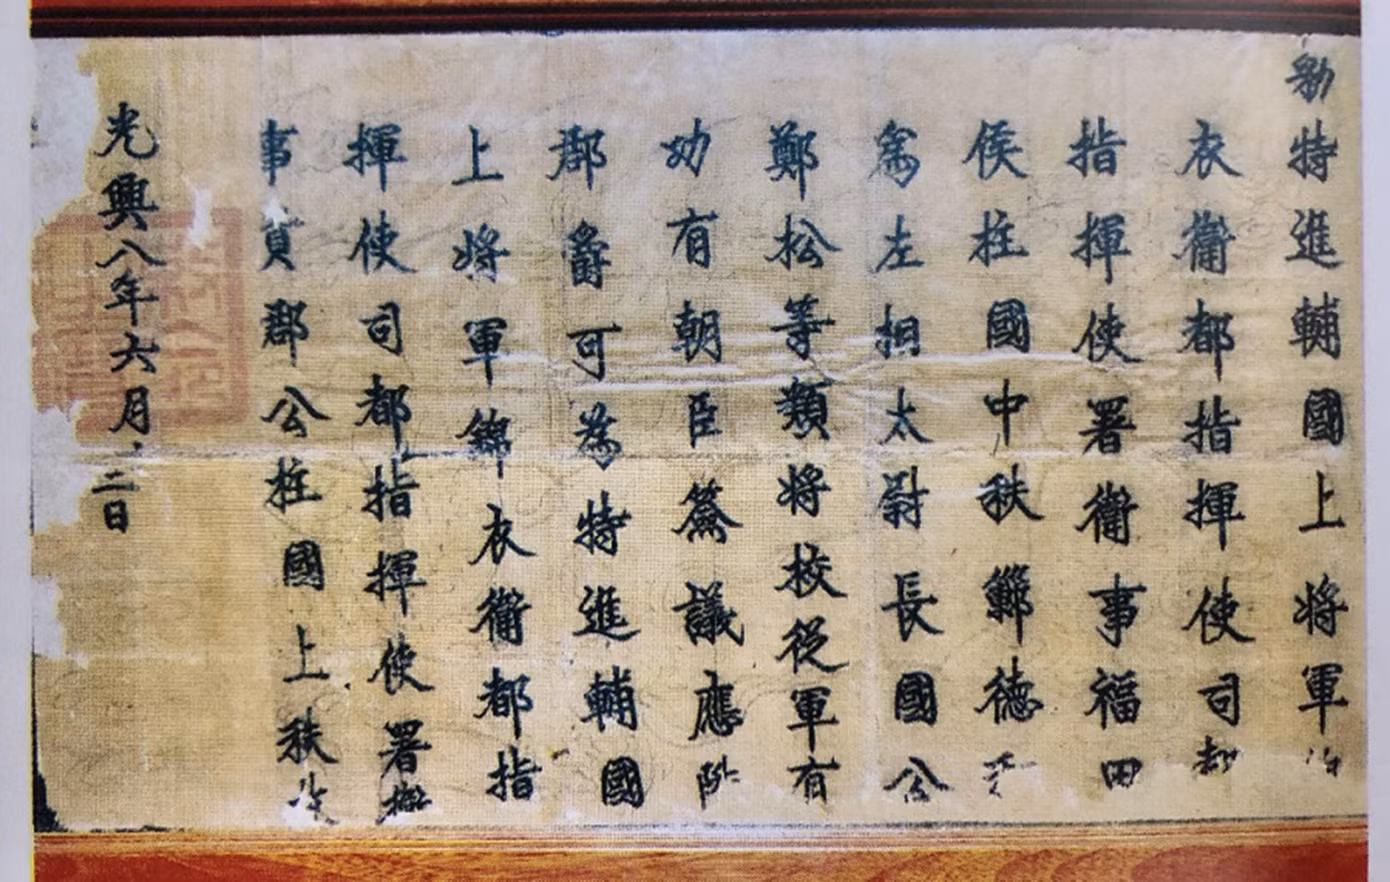 勅特進輔國上将軍
衣衛都指揮使司都
指揮使署衛事福田
侯柱國中秩德
為左相太尉長國公
鄭松等類将校從軍有
功有朝臣簽議應陞
郡爵可為特進輔國
上将軍錦衣衛都指
揮使司都指揮使署
事貢郡公柱國上秩
光興八年六月二日